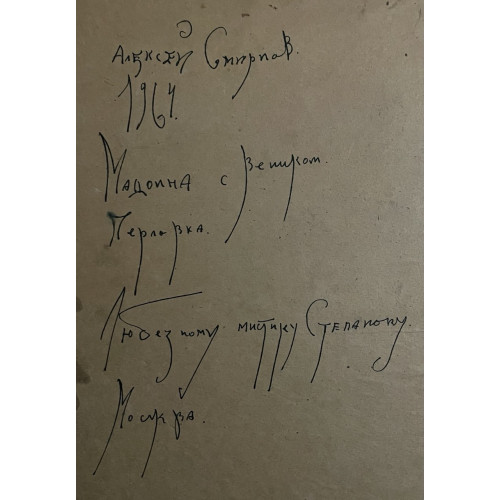 Алексей Смирнов.
1964.
Мадонна с веником.
Перловка.
Любезному мистику Степанову.
Москва.